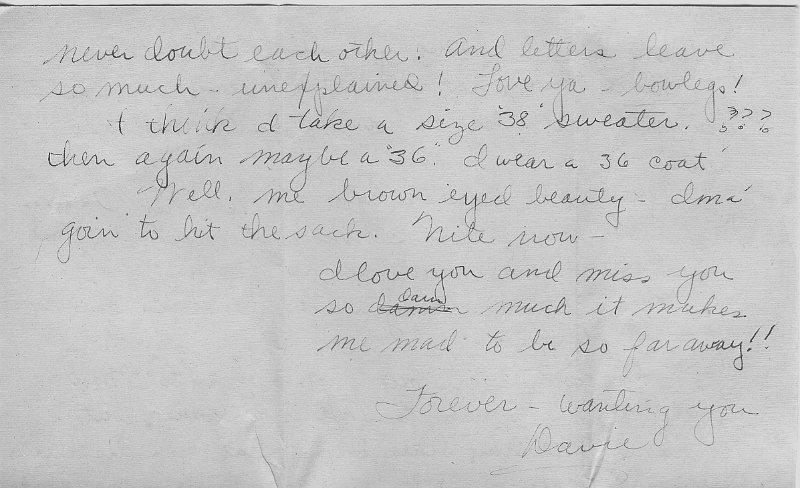 never doubt each other! And letters leave
so much - unexplained! Love ya - bowlegs!
I think I take a size "38" sweater. ????
then again maybe a "36". I wear a 36 coat
Well, me brown eyed beauty - Ima'
goin' to hit the sack. Nite now -
I love you and miss you
so darn much it makes
me mad to be so far away!!
Forever - wanting you
Davie